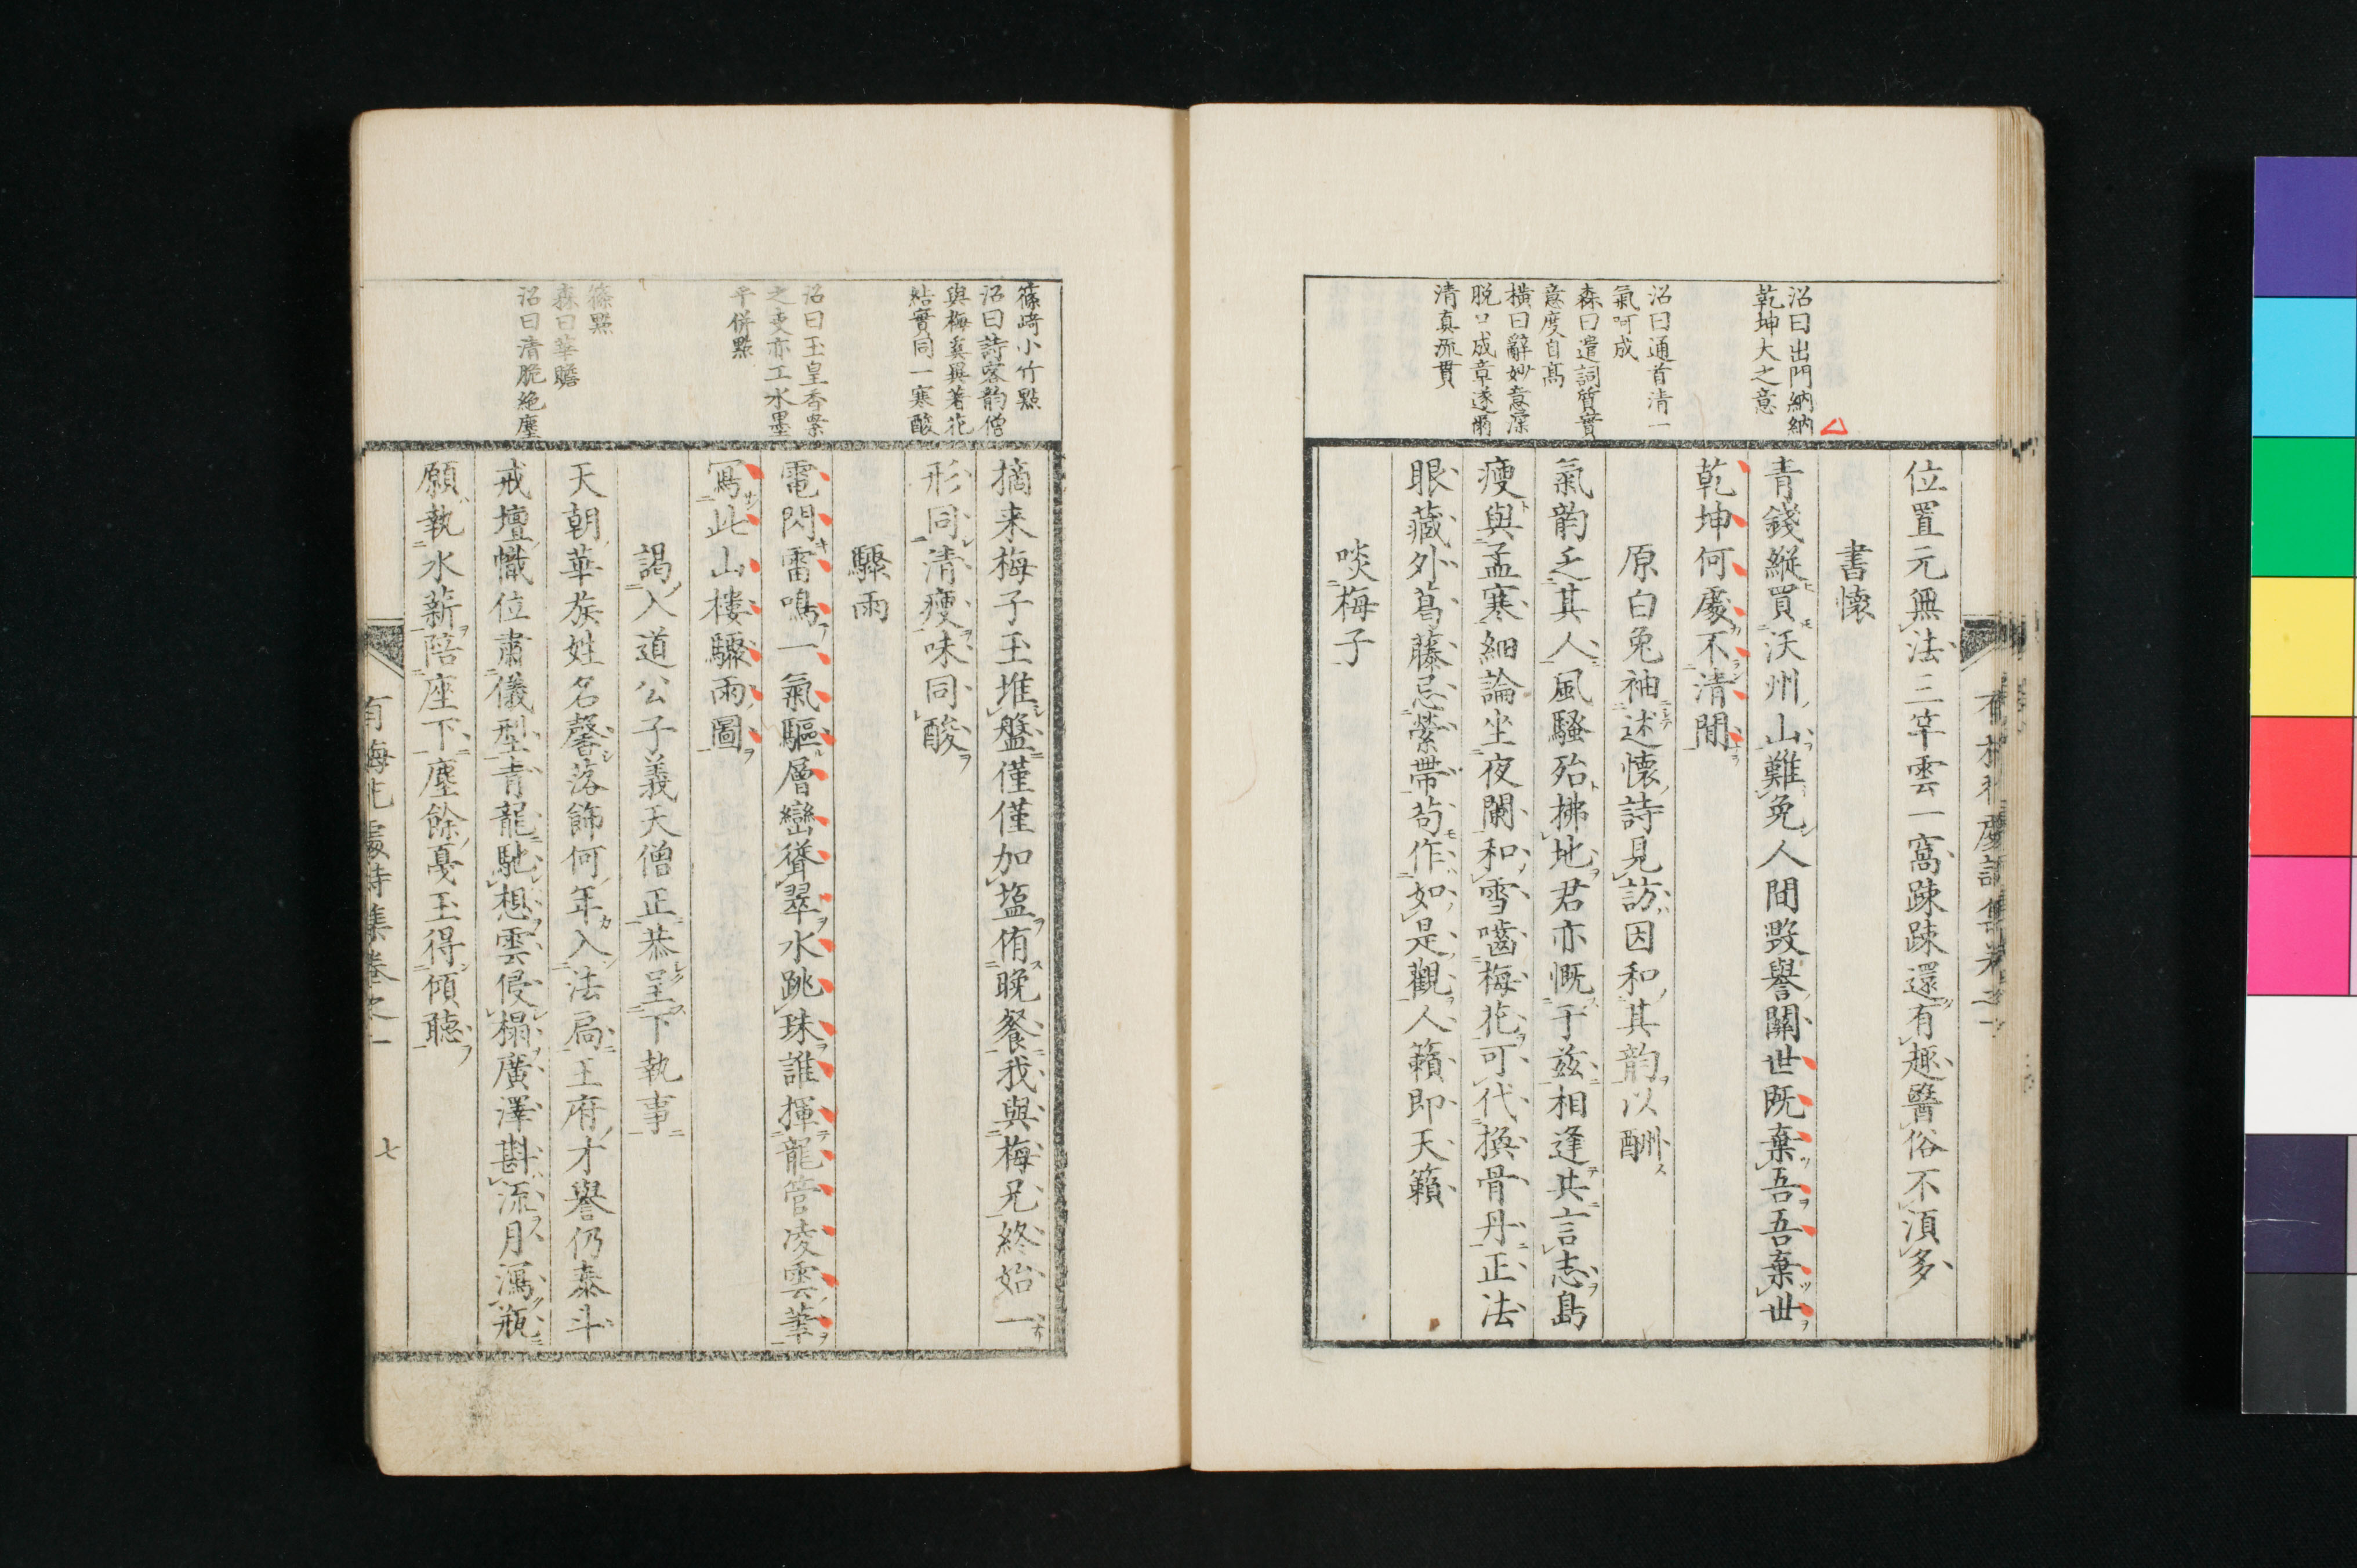 位置元無法三竿雲一窩踈踈還有趣醫俗不須多
書懷
青錢縦買沃州山難免人間毀譽關世既棄吾吾棄世
乾坤何處不清閒
原白兔袖述懷詩見訪因和其韵以酬
氣韵乏其人風騷殆拂地君亦慨于兹相逢共言志島
瘦與孟寒細論坐夜闌和雪嚙梅花可代換骨丹正法
眼藏外葛藤忌縈帶苟作如是觀人籟即天籟
啖梅子
沼曰出門納納
乾坤大之意
沼曰通首清一
氣呵成
森曰遣詞質實
意度自高
橫曰辭妙意深
脱口成章遂爾
清真流貫
摘来梅子玉堆盤僅僅加塩侑晚餐我與梅兄終始一
形同清瘦味同酸
驟雨
電閃雷鳴一氣驅層巒聳翠水跳珠誰揮龍管凌雲筆
寫此山樓驟雨圖
謁入道公子義天僧正恭呈下執事
天朝華族姓名馨落飾何年入法扃王府才譽仍泰斗
戒壇幟位肅儀型青龍馳想雲侵榻廣澤斟流月瀉瓶
願執水薪陪座下塵餘戞玉得傾聽
篠崎小竹點
沼曰詩客韵僧
與梅奚異著花
結實同一寒酸
沼曰玉皇香案
之吏亦工水墨
平併點
篠點
森曰華贍
沼曰清脆絶塵
有梅花處詩集卷之一
七